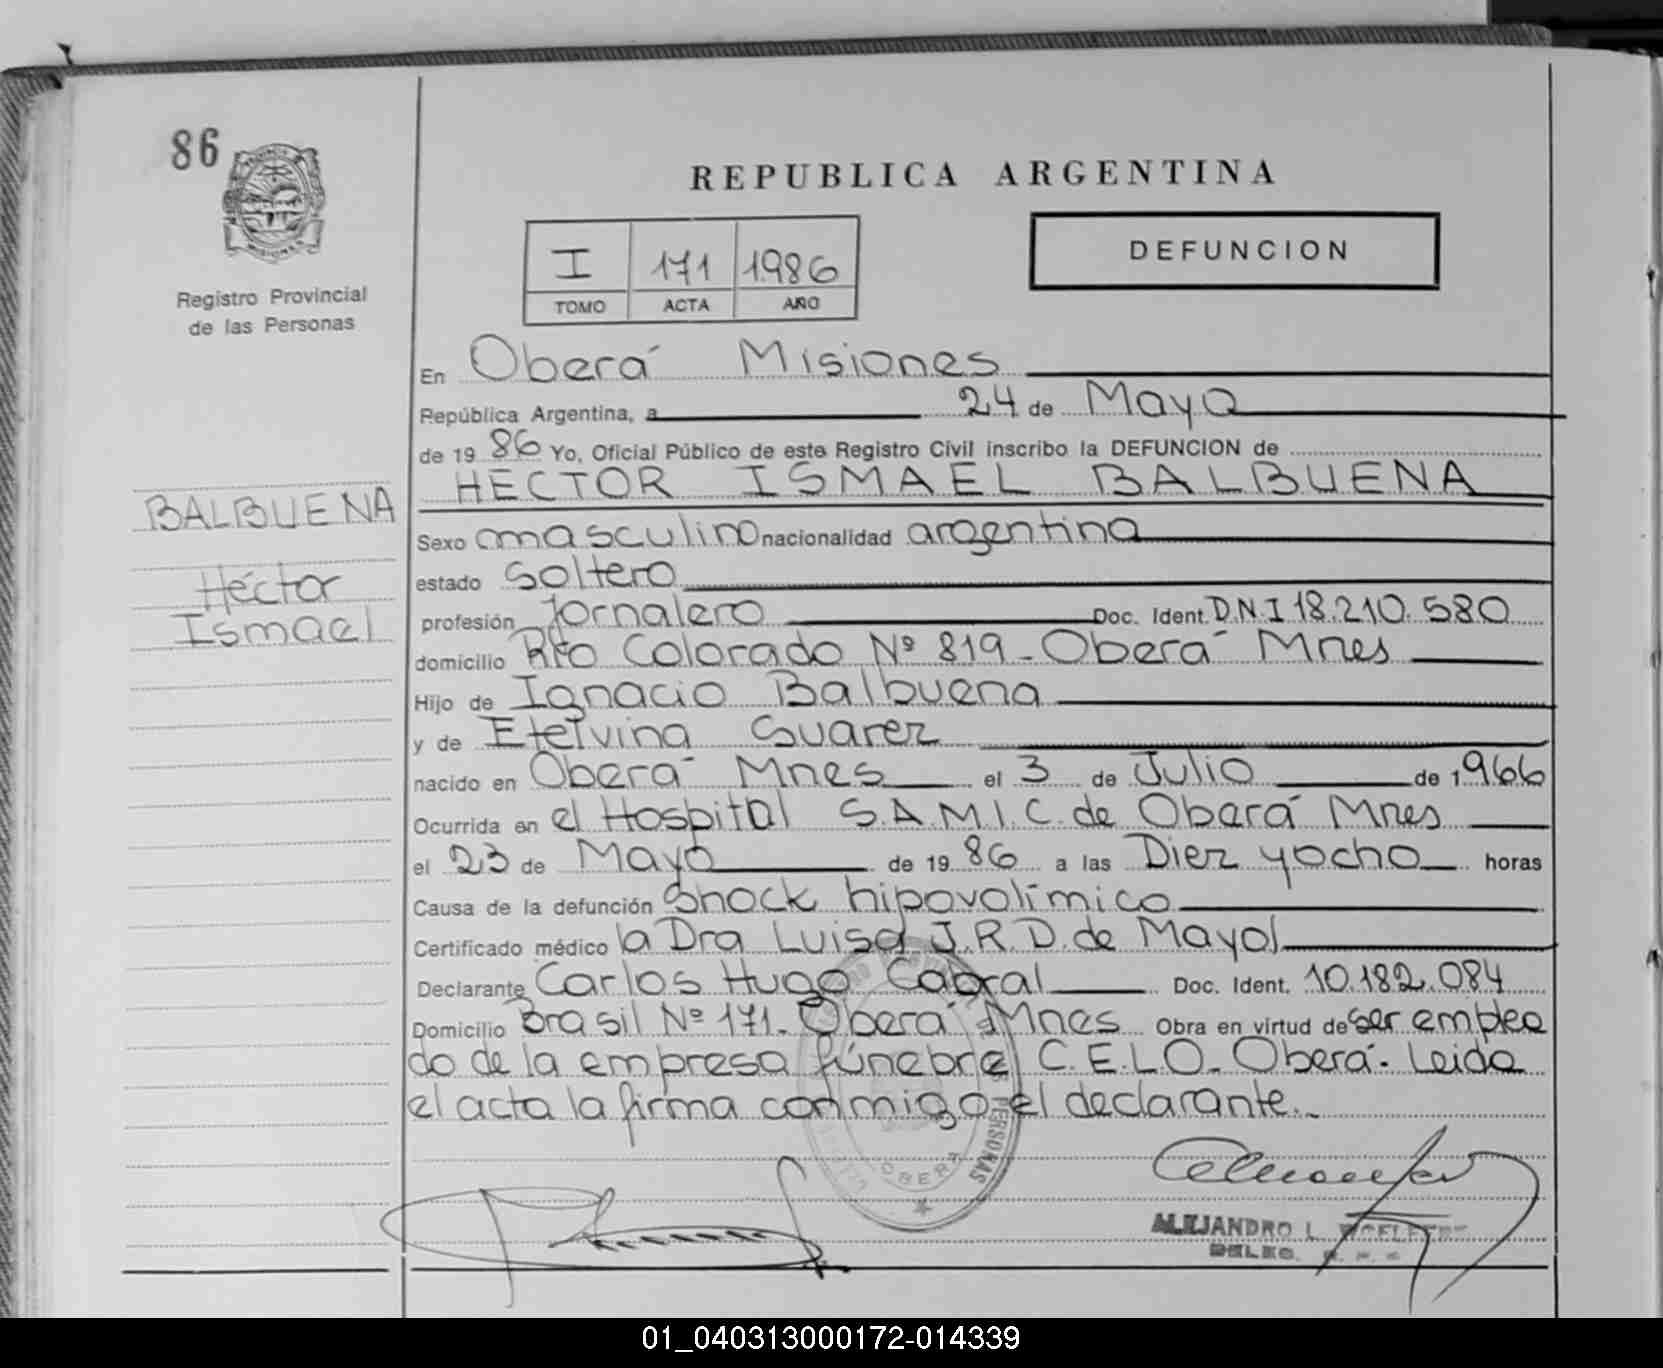 86
REPUBLICA ARGENTINA
I 171 1986
TOMO ACTA AÑO
DEFUNCION
Registro Provincial
de las Personas
En Oberá Misiones
República Argentina, a 24 de Mayo
de 19 86 Yo, Oficial Público de este Registro Civil inscribo la DEFUNCION de
HECTOR ISMAEL BALBUENA
BALBUENA
Héctor
Ismael
Sexo masculino nacionalidad argentina
estado soltero
profesión Jornalero Doc. Ident. D.N.I 18.210.580
domicilio Rto Colorado Nº 819 - Oberá Mnes
Hijo de Ignacio Balbuena
y de Etelvina Suarez
nacido en Oberá Mnes el 3 de Julio de 1966
Ocurrida en el Hospital S.A.M.I.C. de Oberá Mnes
el 23 de Mayo de 19 86 a las Diez yocho horas
Causa de la defunción Shock hipovolímico
Certificado médico la Dra Luisa J.R.D. de Mayol
Declarante Carlos Hugo Cabral Doc. Ident. 10.182.084
Domicilio Brasil Nº 171. Oberá Mnes Obra en virtud de ser emplea
do de la empresa fúnebre C.E.L.O. Oberá. Leida
el acta la firma conmigo el declarante.
PERSONAS
OBERA
ALEJANDRO L.
DELEG.
01_040313000172-014339